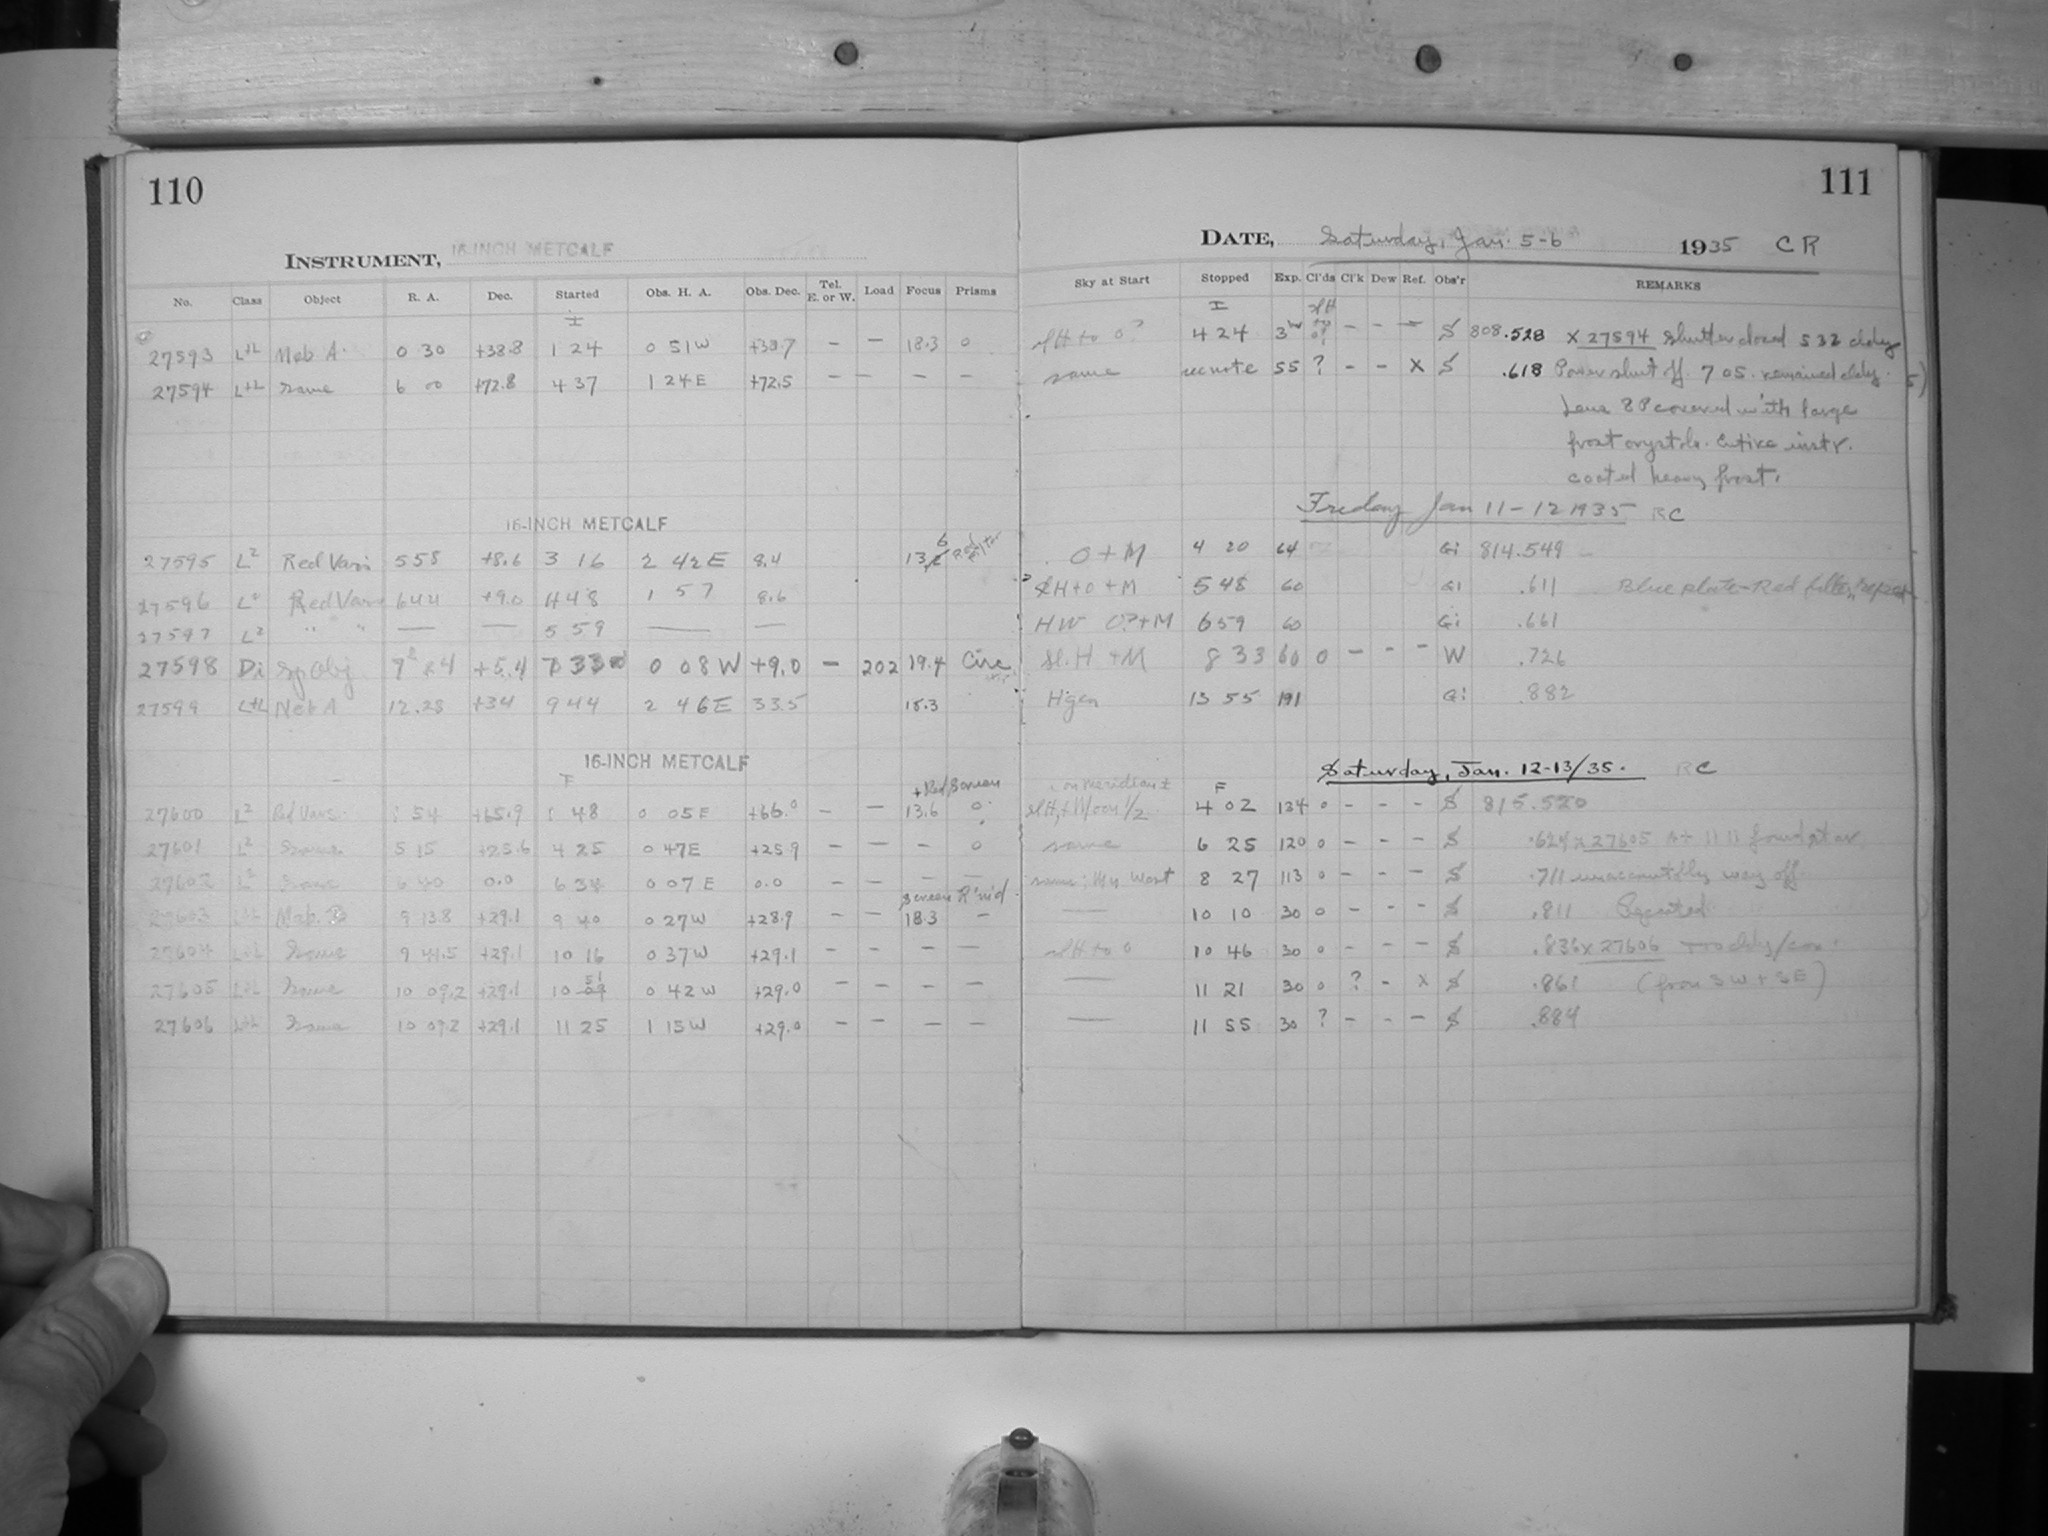 110
INSTRUMENT, 16-INCH METCALF
No. Class Object R. A. Dec. Started Obs. H. A. Obs. Dec. Tel. E. or W. Load Focus Prisms
I
27593 L+L Neb A. 0 30 +38.8 1 24 0 51 W +38.7 - - 18.3 0
27594 L+L Same 6 00 +72.8 4 37 1 24 E +72.5 - - - -
16-INCH METCALF
27595 L2 Red Vars 5 58 +8.6 3 16 2 42 E 8.4 13.6 Red filter
27596 L2 Red Vars 6 44 +9.0 4 48 1 57 8.6
27597 L2 " " — — 5 59 — —
27598 Di Sp Obj 7 24 +5.4 7 33 0 08 W +9.0 - 202 19.4 Circ
27599 L+L Neb A 12.28 +34 9 44 2 46 E 33.5 18.3
16-INCH METCALF
F + Red Screen
27600 L2 Red Vars. 1 54 +65.9 1 48 0 05 E +66.0 - - 13.6 0
27601 L2 Same 5 15 +25.6 4 25 0 47 E +25.9 - - - 0
27602 L2 Same 6 40 0.0 6 34 0 07 E 0.0 - - - -
Screen R'm'd
27603 L+L Neb. B 9 13.8 +29.1 9 40 0 27 W +28.9 - - 18.3 -
27604 L+L Same 9 41.5 +29.1 10 16 0 37 W +29.1 - - - -
27605 L+L Same 10 09.2 +29.1 10 51 0 42 W +29.0 - - - -
27606 L+L Same 10 09.2 +29.1 11 25 1 15 W +29.0 - - - -
111
DATE, Saturday, Jan. 5-6 1935 C R
Sky at Start Stopped Exp. Cl'ds Cl'k Dew Ref. Obs'r REMARKS
I
slH to 0? 4 24 3h slH to 0? - - - S 808.528 X 27594 Shutter closed 5 32 cldy
same see note 55 ? - - X S .618 Power shut off 7 05. remained cldy.
Lens & P covered with large
frost crystals. Entire instr.
coated heavy frost.
Friday Jan 11-12 1935 RC
O + M 4 20 64 Gi 814.549
slH+0+M 5 48 60 Gi .611 Blue plate-Red filter, repeat
HW 0?+M 6 59 60 Gi .661
Sl. H +M 8 33 60 0 - - - W .726
Hgen 13 55 191 Gi .882
Saturday, Jan. 12-13/35. RC
on meridian ± F
slH,+Moon 1/2 4 02 134 0 - - - S 815.520
same 6 25 120 0 - - - S .624 x 27605 At 11 11 found star
same; Hu West 8 27 113 0 - - - S .711 unaccountably way off
— 10 10 30 0 - - - S .811 Repeated
slH to 0 10 46 30 0 - - - S .836 x 27606
— 11 21 30 0 ? - X S .861 (from SW + SE)
— 11 55 30 ? - - - S .884